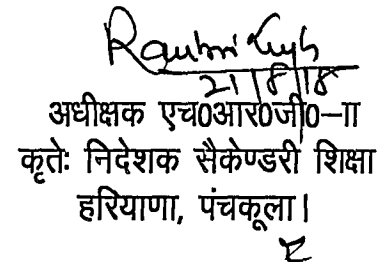 21/8/18
अधीक्षक एच0आर0जी0-II
कृतेः निदेशक सैकेण्डरी शिक्षा
हरियाणा, पंचकूला।